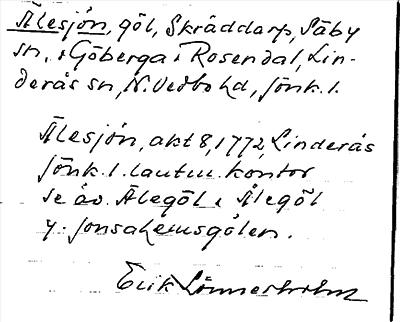 Älesjön, göl, Skräddarp, Säby
sn, i Göberga i Rosendal, Lin-
deråssn, N. Vedbo hd, Jönk. l.
Älesjön, akt 8, 1772, Linderås
Jönk. l. lantm. kontor
se äv. Älegöl i Ålegöl
y. Jonsakemsgölen.
Erik Lönnerholm